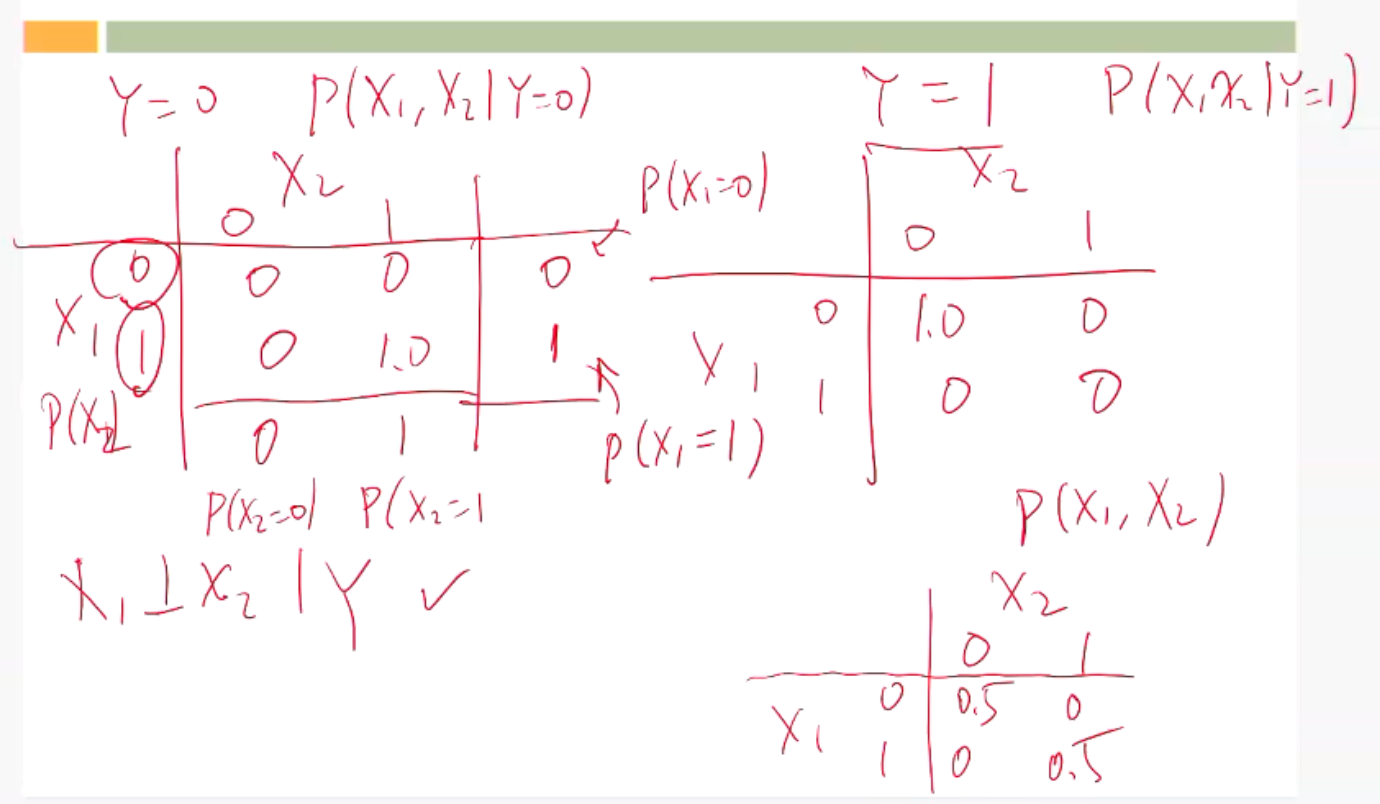 Y=0 P(X₁,X₂|Y=0)
X₂
0 1
0 0 0 0
X₁
1 0 1.0 1
P(X₂)
0 1
P(X₂=0) P(X₂=1
P(X₁=0)
P(X₁=1)
X₁⊥X₂|Y ✓
Y=1 P(X₁X₂|Y=1)
X₂
0 1
0 1.0 0
X₁
1 0 0
P(X₁,X₂)
X₂
0 1
0 0.5 0
X₁
1 0 0.5